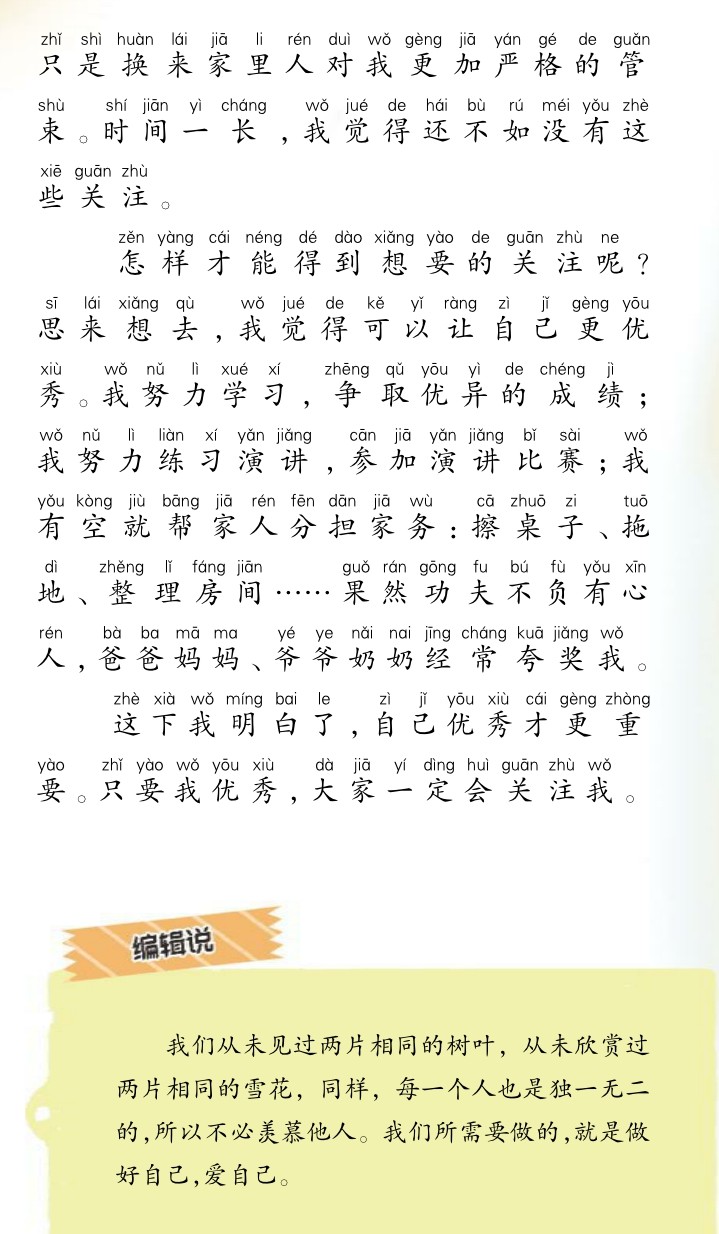 zhǐ shì huàn lái jiā li rén duì wǒ gèng jiā yán gé de guǎn
只是换来家里人对我更加严格的管
shù shí jiān yì cháng wǒ jué de hái bù rú méi yǒu zhè
束。时间一长，我觉得还不如没有这
xiē guān zhù
些关注。
zěn yàng cái néng dé dào xiǎng yào de guān zhù ne
怎样才能得到想要的关注呢？
sī lái xiǎng qù wǒ jué de kě yǐ ràng zì jǐ gèng yōu
思来想去，我觉得可以让自己更优
xiù wǒ nǔ lì xué xí zhēng qǔ yōu yì de chéng jì
秀。我努力学习，争取优异的成绩；
wǒ nǔ lì liàn xí yǎn jiǎng cān jiā yǎn jiǎng bǐ sài wǒ
我努力练习演讲，参加演讲比赛；我
yǒu kòng jiù bāng jiā rén fēn dān jiā wù cā zhuō zi tuō
有空就帮家人分担家务：擦桌子、拖
dì zhěng lǐ fáng jiān guǒ rán gōng fu bú fù yǒu xīn
地、整理房间……果然功夫不负有心
rén bà ba mā ma yé ye nǎi nai jīng cháng kuā jiǎng wǒ
人，爸爸妈妈、爷爷奶奶经常夸奖我。
zhè xià wǒ míng bai le zì jǐ yōu xiù cái gèng zhòng
这下我明白了，自己优秀才更重
yào zhǐ yào wǒ yōu xiù dà jiā yí dìng huì guān zhù wǒ
要。只要我优秀，大家一定会关注我。
编辑说
我们从未见过两片相同的树叶，从未欣赏过
两片相同的雪花，同样，每一个人也是独一无二
的，所以不必羡慕他人。我们所需要做的，就是做
好自己，爱自己。